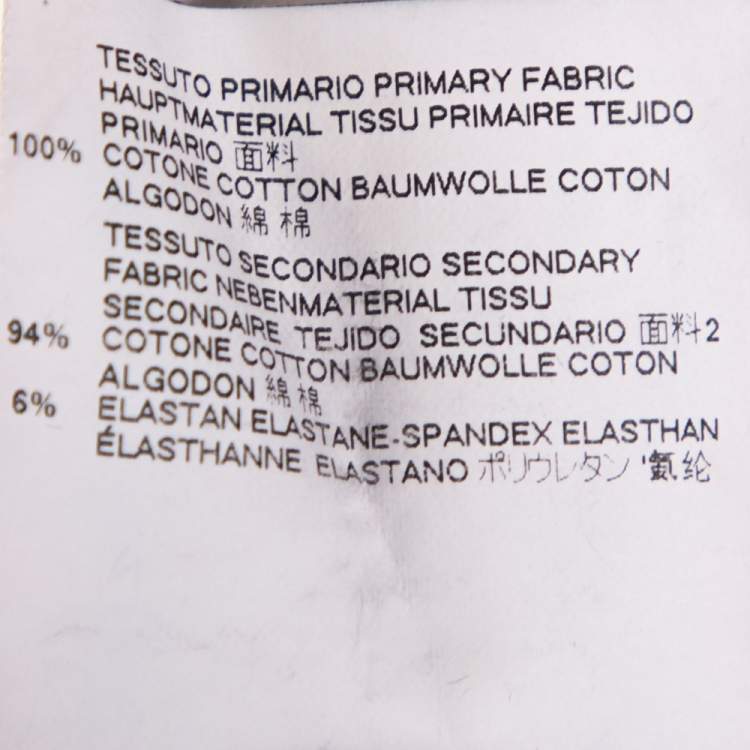 TESSUTO PRIMARIO PRIMARY FABRIC
HAUPTMATERIAL TISSU PRIMAIRE TEJIDO
PRIMARIO 面料
100% COTONE COTTON BAUMWOLLE COTON
ALGODON 綿 棉
TESSUTO SECONDARIO SECONDARY
FABRIC NEBENMATERIAL TISSU
SECONDAIRE TEJIDO SECUNDARIO 面料2
94% COTONE COTTON BAUMWOLLE COTON
ALGODON 綿 棉
6% ELASTAN ELASTANE-SPANDEX ELASTHAN
ÉLASTHANNE ELASTANO ポリウレタン '氨纶